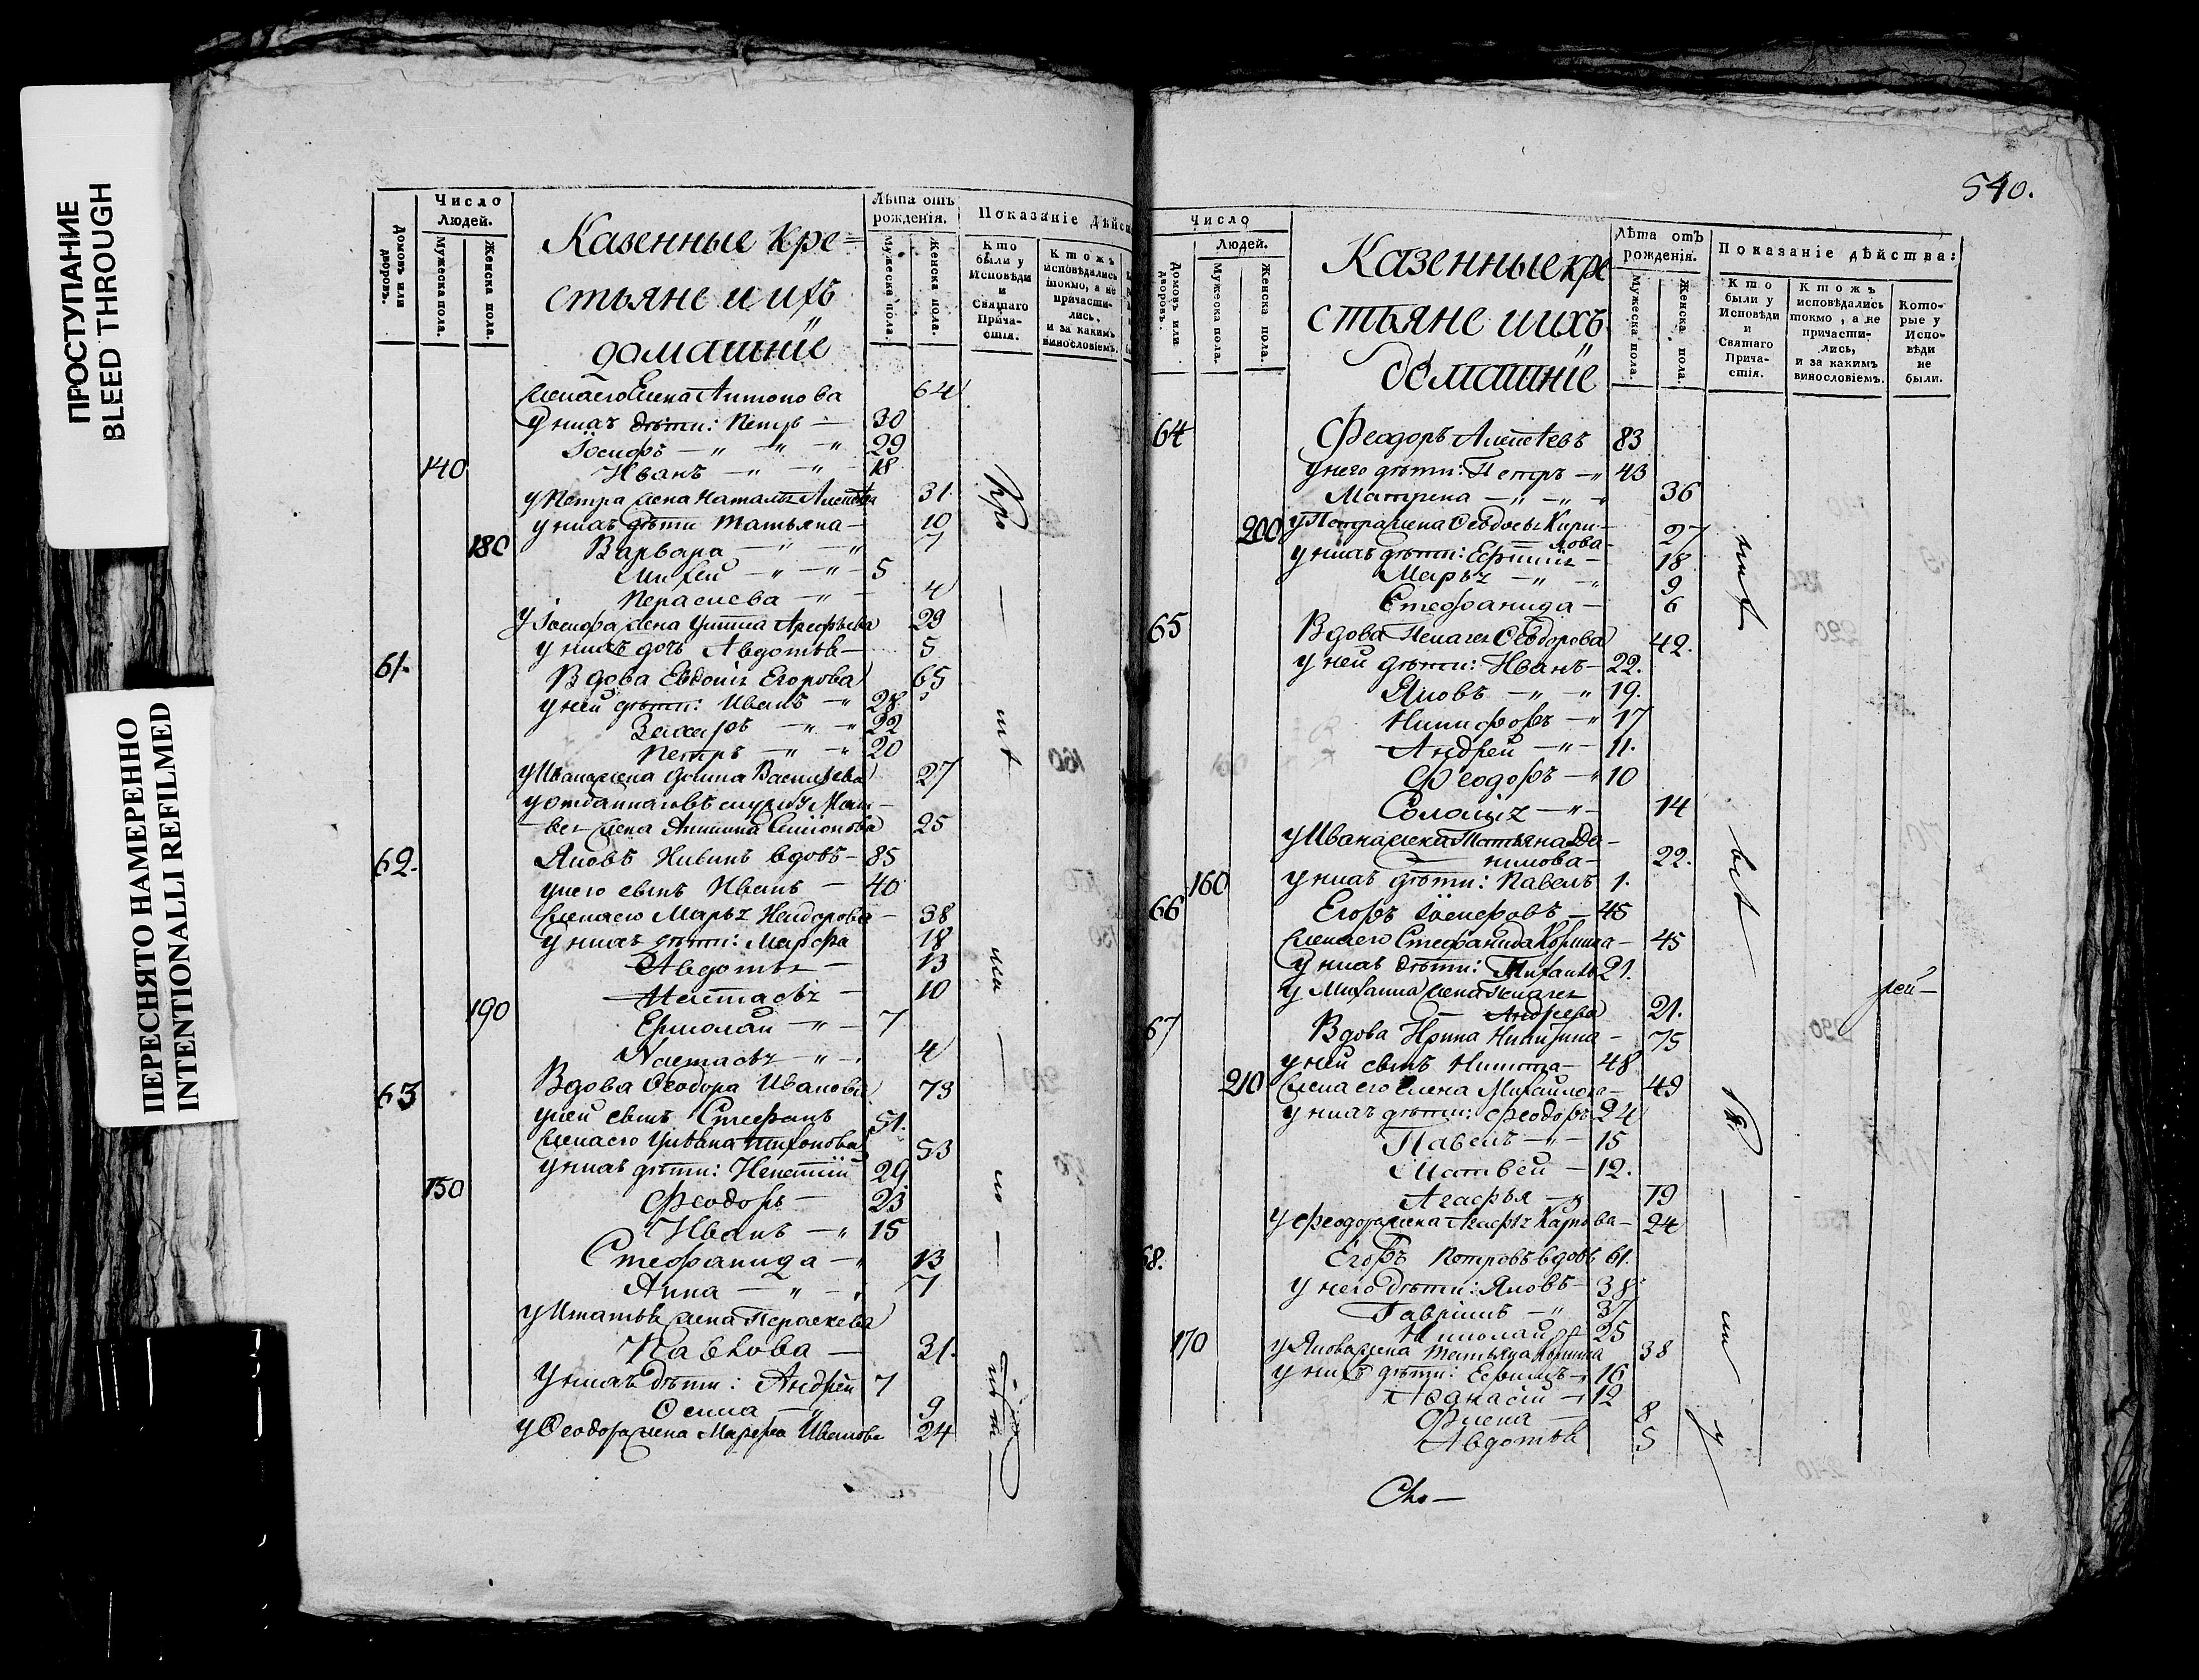 ПРОСТУПАНИЕ
BLEED THROUGH
ПЕРЕСНЯТО НАМЕРЕННО
INTENTIONALLI REFILMED
Домовъ или дворовъ.
Число Людей.
Мужеска пола.
Женска пола.
Казенные кре=
стьяне и ихъ
домашнїе
Лѣта отъ рожденія.
Мужеска пола.
Женска пола.
Показаніе дѣйс
Кто были у Исповѣди и Святаго Прича-стія.
Ктожъ исповѣдались токмо, а не причасти-лись, и за какимъ винословіемъ.
жена его Елена Антонова 64
у нихъ дѣти: Петръ — 30
Іосифъ — " — " 29
140 Иванъ — " — " 18
у Петра жена Наталья 31
у нихъ дѣти Татьяна — 10
180 Варвара — " — " 7
Михей — " — " 5
Параскева — " — 4
у Іосифа жена Арефьева 29
у нихъ дочь Авдотья — 5
61. Вдова Евдокія Егорова 65
у ней дѣти: Иванъ — " 28
Захаръ — " — " 22
Петръ — " — " 20
у Ивана жена Васильева 27
у отданнаго въ Мат-
вея жена Симонова 25
62. Яковъ вдовъ — 85
у него сынъ Иванъ — 40
жена его Марья — 38
у нихъ дѣти: Марфа 18
Авдотья — 13
190 Настасья — 10
Ермолай — " — 7
Настасья — " — 4
63 Вдова Феодора Иванова 73
у ней сынъ Стефанъ 51.
жена его Ульяна Тихонова 53
у нихъ дѣти: 29
150 Феодоръ — 23
Иванъ — " 15
Стефанида — " 13
Анна — " — " 7
у жена Параскева
Павлова — 31.
у нихъ дѣти: Андрей 7
9
у Феодора жена Марфа Иванова 24
540.
Число
Домовъ или дворовъ.
Людей.
Мужеска пола.
Женска пола.
Казенные кре
стьяне и ихъ
домашнїе
Лѣта отъ рожденія.
Мужеска пола.
Женска пола.
Показаніе дѣйства:
Кто были у Исповѣди и Святаго Прича-стія.
Ктожъ исповѣдались токмо, а не причасти-лись, и за какимъ винословіемъ.
Кото-рые у Испо-вѣди не были.
64 Феодоръ Алексѣевъ 83
у него дѣти: Петръ — " 43
Матрена — " — " 36
200 у Петра жена Феодосья Кири-
лова — 27
у нихъ дѣти: — 18
Марья — " — " 9
Стефанида — 6
65 Вдова Пелагея Феодорова 42.
у ней дѣти: Иванъ — 22.
Яковъ — " — " 19.
Никифоръ — " 17
Андрей — " — 11.
Феодоръ — " 10
— " — 14
у Ивана жена Татьяна Да-
нилова — 22.
160 у нихъ дѣти: Павелъ 1.
66 Егоръ Іосифовъ — 45
жена его Стефанида — 45
у нихъ дѣти: 21.
у жена Пелагея
Андреева 21.
67 Вдова Ирина Никитина — 75
у ней сынъ Никита — 48
210 жена его Елена Михайлова — 49
у нихъ дѣти: Феодоръ 24
Павелъ — " — 15
Матвей — 12.
Агафья — " 19
у Феодора жена Агафья Карпова — 24
68. Егоръ Петровъ вдовъ 61.
у него дѣти: Яковъ — 38
Гавріилъ — " 37
Николай 25
170 у Якова жена Татьяна 38
у нихъ дѣти: — 16
Афанасій — 12
8
Авдотья 5